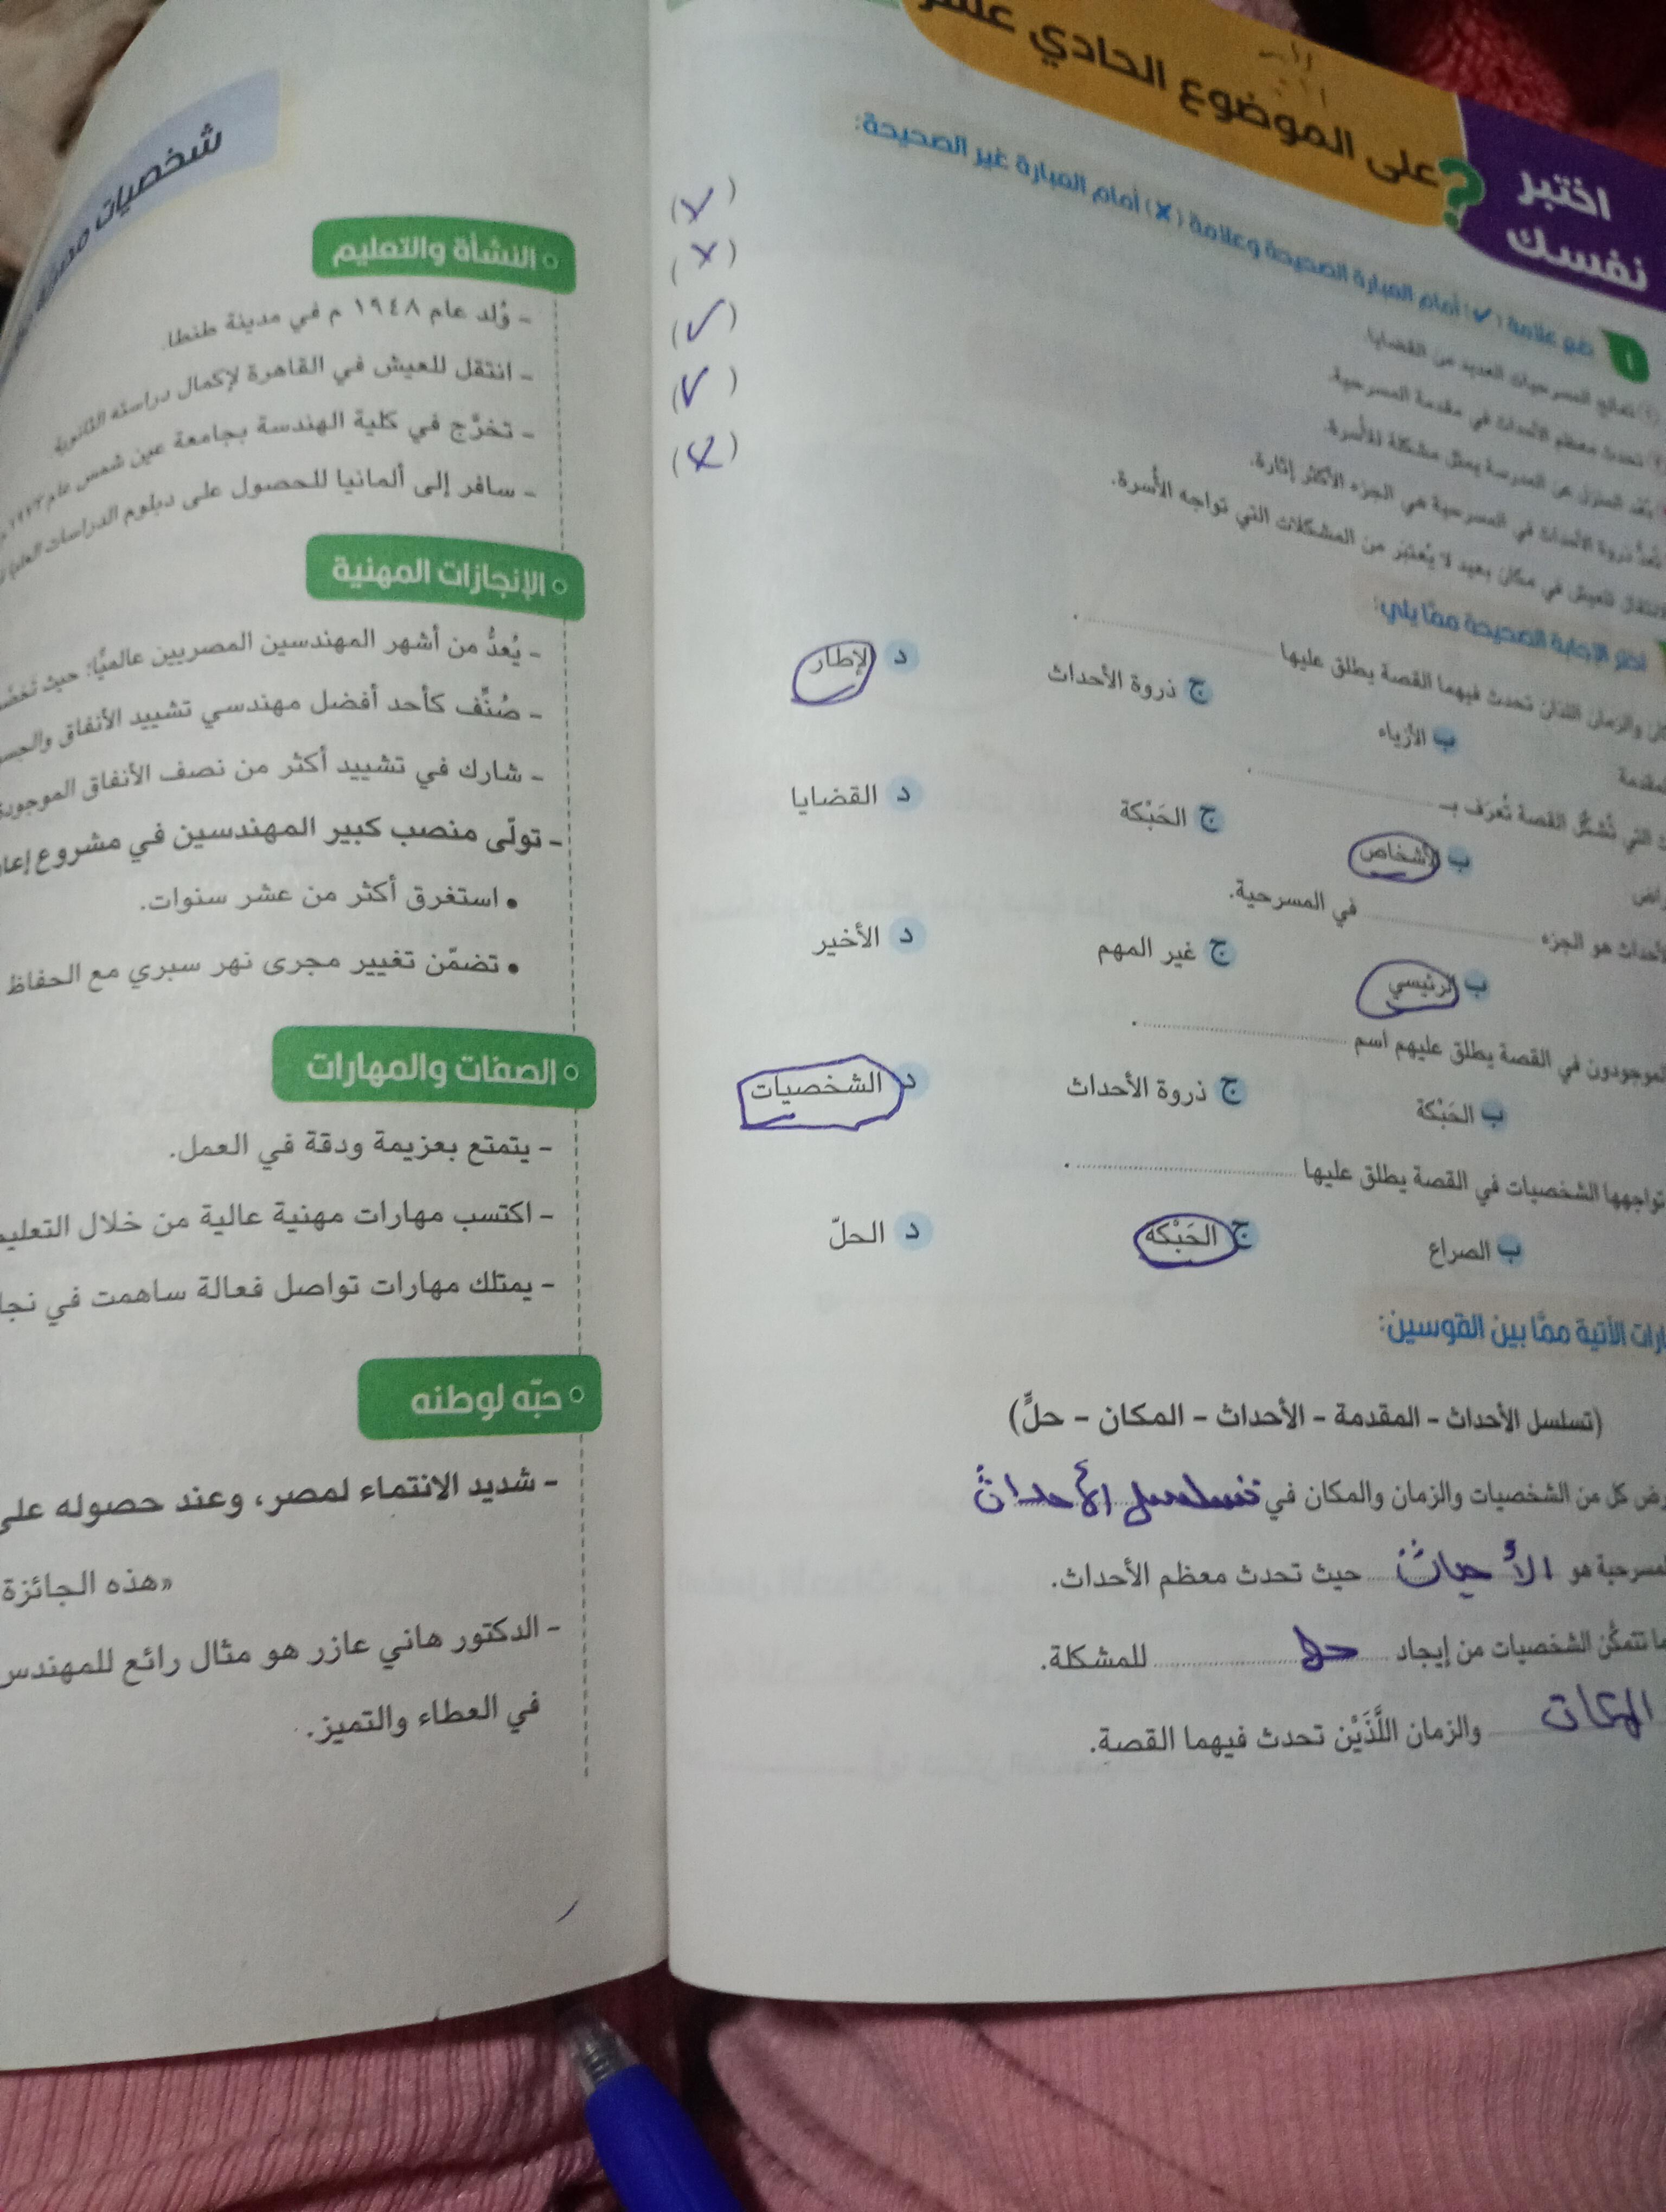 اختبر
نفسك
على الموضوع الحادي عشر
١ ضع علامة (✓) أمام العبارة الصحيحة وعلامة (✗) أمام العبارة غير الصحيحة:
تعالج المسرحيات العديد من القضايا. (✗)
تحدث معظم الأحداث في مقدمة المسرحية. (✗)
بُعد المنزل عن المدرسة يمثل مشكلة للأسرة. (✓)
تُعدُّ ذروة الأحداث في المسرحية هي الجزء الأكثر إثارة. (✓)
الانتقال للعيش في مكان بعيد لا يُعتبَر من المشكلات التي تواجه الأسرة. (✗)
اختر الإجابة الصحيحة ممَّا يلي:
والزمان اللذان تحدث فيهما القصة يطلق عليها ............ .
المقدمة ب الأزياء ج ذروة الأحداث د الإطار
التي تُشكِّل القصة تُعرَف بـ ............ .
ب الأشخاص ج الحَبْكة د القضايا
الأحداث هو الجزء ............ في المسرحية.
ب الرئيسي ج غير المهم د الأخير
الموجودون في القصة يطلق عليهم اسم ............ .
ب الحَبْكة ج ذروة الأحداث د الشخصيات
تواجهها الشخصيات في القصة يطلق عليها ............ .
ب الصراع ج الحَبْكة د الحلّ
الآتية ممَّا بين القوسين:
(تسلسل الأحداث - المقدمة - الأحداث - المكان - حلٍّ)
كل من الشخصيات والزمان والمكان في تسلسل الأحداث
هو الأحداث حيث تحدث معظم الأحداث.
تتمكَّن الشخصيات من إيجاد حل للمشكلة.
المكان والزمان اللَّذَيْن تحدث فيهما القصة.
شخصيات
النشأة والتعليم
- وُلد عام ١٩٤٨ م في مدينة طنطا.
- انتقل للعيش في القاهرة لإكمال دراسته الثانوية
- تخرَّج في كلية الهندسة بجامعة عين شمس عام
- سافر إلى ألمانيا للحصول على دبلوم الدراسات العليا
الإنجازات المهنية
- يُعدُّ من أشهر المهندسين المصريين عالميًّا؛ حيث
- صُنِّف كأحد أفضل مهندسي تشييد الأنفاق
- شارك في تشييد أكثر من نصف الأنفاق الموجودة
- تولّى منصب كبير المهندسين في مشروع
• استغرق أكثر من عشر سنوات.
• تضمّن تغيير مجرى نهر سبري مع الحفاظ
الصفات والمهارات
- يتمتع بعزيمة ودقة في العمل.
- اكتسب مهارات مهنية عالية من خلال
- يمتلك مهارات تواصل فعالة ساهمت في
حبّه لوطنه
- شديد الانتماء لمصر، وعند حصوله على
«هذه الجائزة
- الدكتور هاني عازر هو مثال رائع للمهندس
في العطاء والتميز.